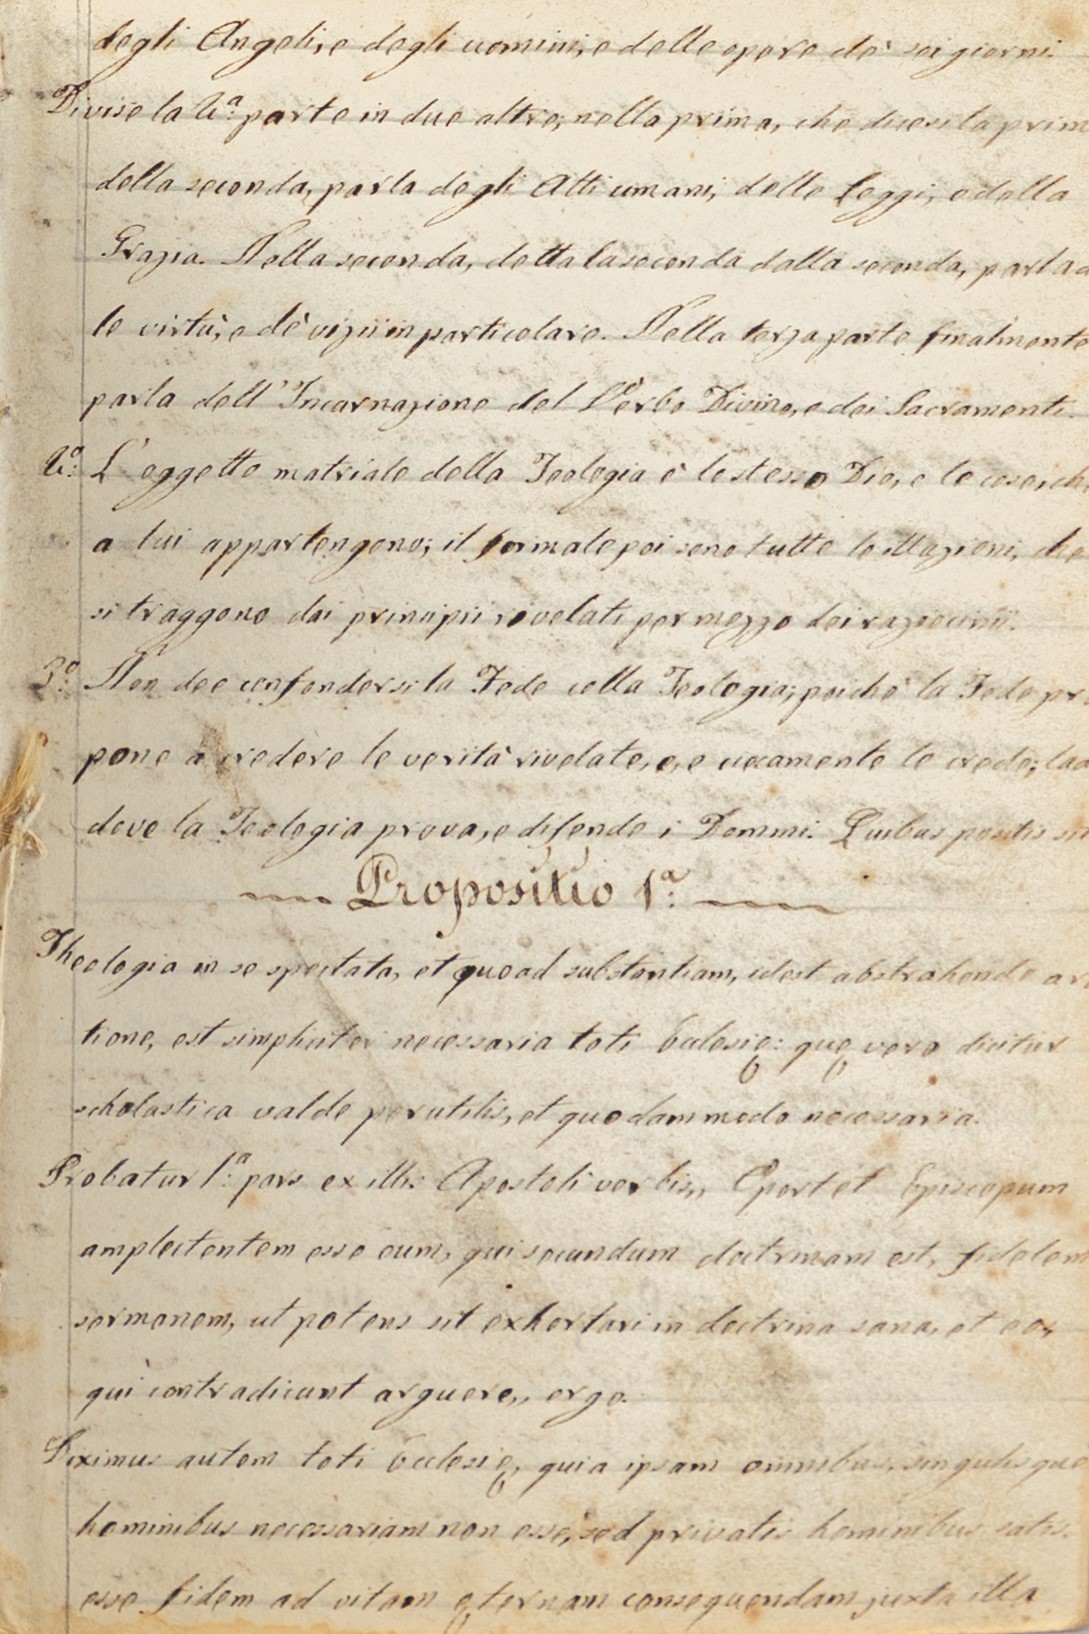 degli Angeli, e degli uomini, e delle opere de' sei giorni.
Divise la 2ª: parte in due altre; nella prima, che dicesi la prim
della seconda, parla degli Atti umani, delle Leggi, e della
Grazia. Nella seconda, detta la seconda dalla seconda, parla d
le virtù, e de' vizii in particolare. Nella terza parte finalmente
parla dell' Incarnazione del Verbo Divino, e dei Sacramenti.
2º: L' oggetto matriale della Teologia è lo stesso Dio, e le cose, ch
a lui appartengono; il formale poi sono tutte le illazioni, che
si traggono dai principii rivelati per mezzo dei raziocinii.
3º: Non dee confondersi la Fede colla Teologia; poichè la Fede pr
pone a credere le verità rivelate, e, e cecamente le crede; lad
dove la Teologia prova, e difende i Dommi. Quibus positis sit
Propositio 1ª:
Theologia in se spectata, et quoad substantiam, idest abstrahendo a r
tione, est simpliciter necessaria toti Ecclesię: quę vero dicitur
scholastica valde perutilis, et quodammodo necessaria.
Probatur 1ª: pars ex illis Apostoli verbis,, Oportet Episcopum
amplectentem esse eum, qui secundum doctrinam est, fidelem
sermonem, ut potens sit exhortari in doctrina sana, et eos,
qui contradicunt arguere,, ergo.
Diximus autem toti Ecclesię, quia ipsam omnibus, singulisque
hominibus necessariam non esse, sed privatis hominibus satis
esse fidem ad vitam ęternam consequendam, juxta illa